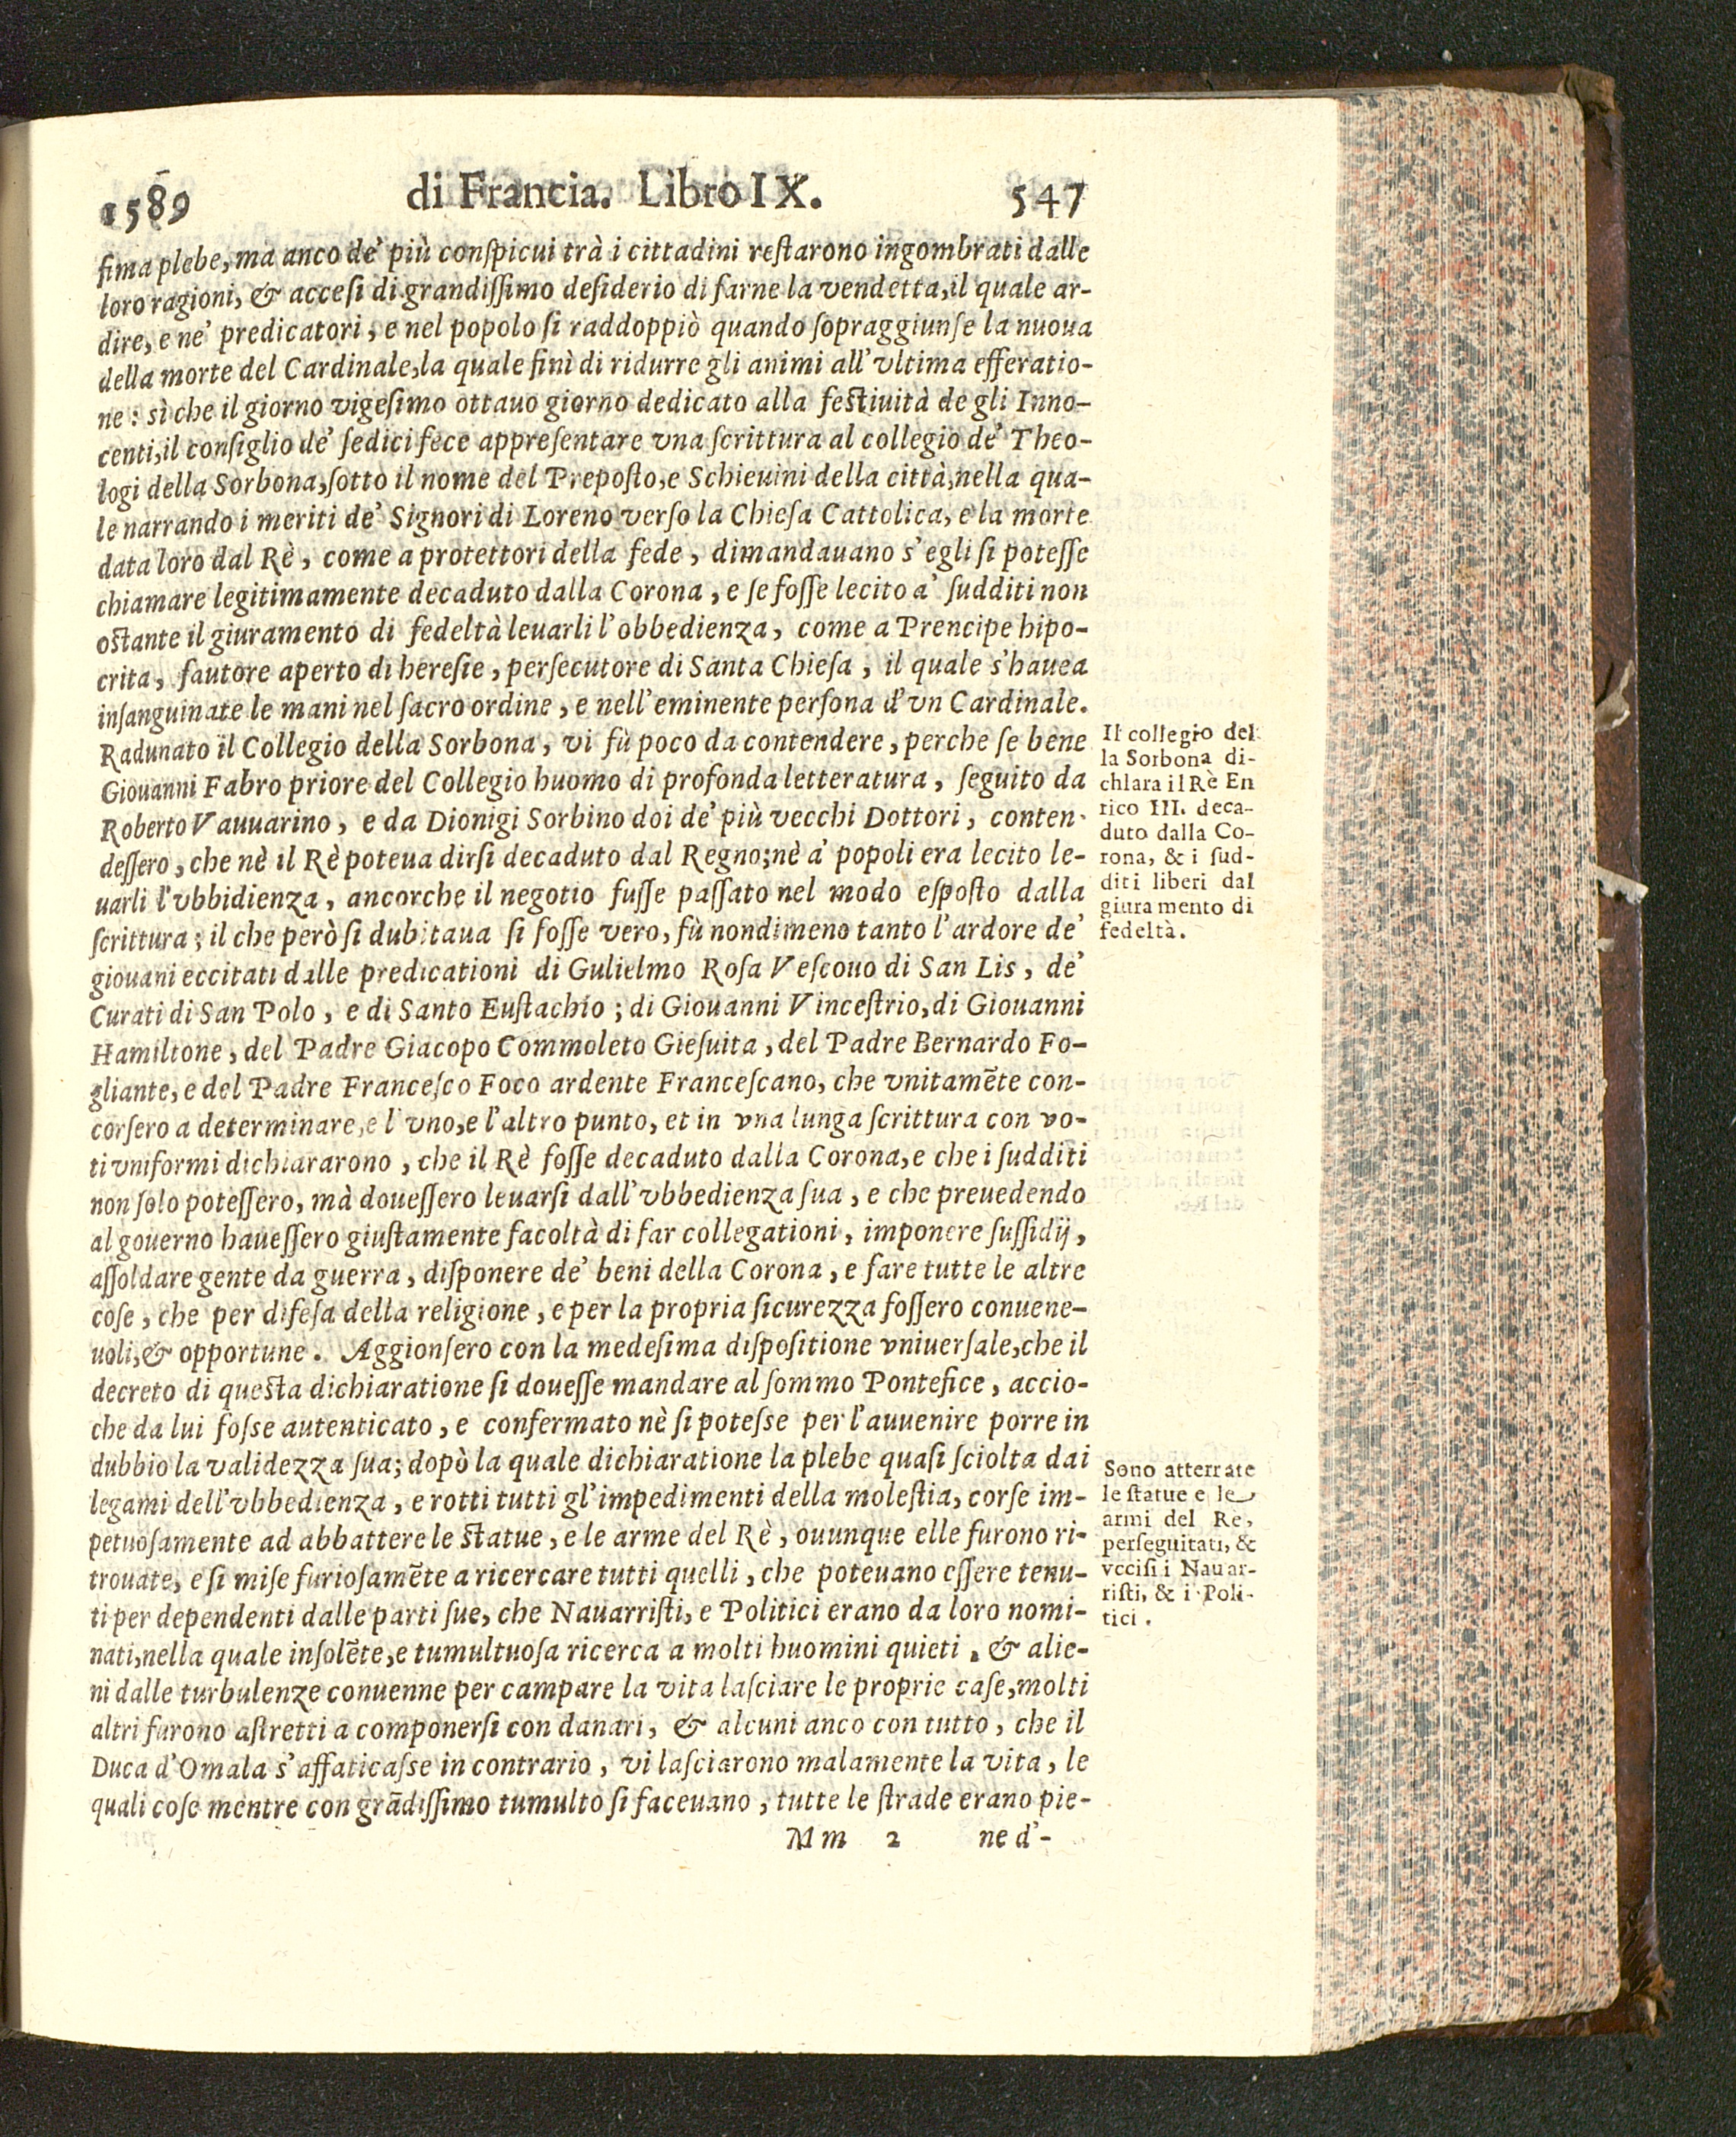 1589 di Francia. Libro IX. 547
ſima plebe, ma anco de' più conſpicui trà i cittadini reſtarono ingombrati dalle
loro ragioni, & acceſi di grandiſſimo deſiderio di farne la vendetta, il quale ar-
dire, e ne' predicatori, e nel popolo ſi raddoppiò quando ſopraggiunſe la nuoua
della morte del Cardinale, la quale finì di ridurre gli animi all' vltima efferatio-
ne: sì che il giorno vigeſimo ottauo giorno dedicato alla feſtiuità de gli Inno-
centi, il conſiglio de' ſedici fece appreſentare vna ſcrittura al collegio de' Theo-
logi della Sorbona, ſotto il nome del Prepoſto, e Schieuini della città, nella qua-
le narrando i meriti de' Signori di Loreno verſo la Chieſa Cattolica, e la morte
data loro dal Rè, come a protettori della fede, dimandauano s' egli ſi poteſſe
chiamare legitimamente decaduto dalla Corona, e ſe foſſe lecito a' ſudditi non
oſtante il giuramento di fedeltà leuarli l' obbedienza, come a Prencipe hipo-
crita, fautore aperto di hereſie, perſecutore di Santa Chieſa, il quale s' hauea
inſanguinate le mani nel ſacro ordine, e nell' eminente perſona d' vn Cardinale.
Radunato il Collegio della Sorbona, vi fù poco da contendere, perche ſe bene
Giouanni Fabro priore del Collegio huomo di profonda letteratura, ſeguito da
Roberto Vauuarino, e da Dionigi Sorbino doi de' più vecchi Dottori, conten-
deſſero, che nè il Rè poteua dirſi decaduto dal Regno; nè a' popoli era lecito le-
uarli l'vbbidienza, ancorche il negotio fuſſe paſſato nel modo eſpoſto dalla
ſcrittura; il che però ſi dubitaua ſi foſſe vero, fù nondimeno tanto l' ardore de'
giouani eccitati dalle predicationi di Gulielmo Roſa Veſcouo di San Lis, de'
Curati di San Polo, e di Santo Euſtachio; di Giouanni Vinceſtrio, di Giouanni
Hamiltone, del Padre Giacopo Commoleto Gieſuita, del Padre Bernardo Fo-
gliante, e del Padre Franceſco Foco ardente Franceſcano, che vnitamẽte con-
corſero a determinare, e l' vno, e l' altro punto, et in vna lunga ſcrittura con vo-
ti vniformi dichiararono, che il Rè foſſe decaduto dalla Corona, e che i ſudditi
non ſolo poteſſero, mà doueſſero leuarſi dall' vbbedienza ſua, e che preuedendo
al gouerno haueſſero giuſtamente facoltà di far collegationi, imponere ſuſſidij,
aſſoldare gente da guerra, diſponere de' beni della Corona, e fare tutte le altre
coſe, che per difeſa della religione, e per la propria ſicurezza foſſero conuene-
uoli, & opportune. Aggionſero con la medeſima diſpoſitione vniuerſale, che il
decreto di queſta dichiaratione ſi doueſſe mandare al ſommo Pontefice, accio-
che da lui foſse autenticato, e confermato nè ſi poteſse per l' auuenire porre in
dubbio la validezza ſua; dopò la quale dichiaratione la plebe quaſi ſciolta dai
legami dell' vbbedienza, e rotti tutti gl' impedimenti della moleſtia, corſe im-
petuoſamente ad abbattere le ſtatue, e le arme del Rè, ouunque elle furono ri-
trouate, e ſi miſe furioſamẽte a ricercare tutti quelli, che poteuano eſſere tenu-
ti per dependenti dalle parti ſue, che Nauarriſti, e Politici erano da loro nomi-
nati, nella quale inſolẽte, e tumultuoſa ricerca a molti huomini quieti, & alie-
ni dalle turbulenze conuenne per campare la vita laſciare le proprie caſe, molti
altri furono aſtretti a componerſi con danari, & alcuni anco con tutto, che il
Duca d' Omala s' affaticaſse in contrario, vi laſciarono malamente la vita, le
quali coſe mentre con grãdiſſimo tumulto ſi faceuano, tutte le ſtrade erano pie-
Mm 2 ne d'-
Il collegio del
la Sorbona di-
chiara il Rè En
rico III. deca-
duto dalla Co-
rona, & i ſud-
diti liberi dal
giuramento di
fedeltà.
Sono atterrate
le ſtatue e le
armi del Rè,
perſeguitati, &
vcciſi i Nauar-
riſti, & i Poli-
tici.